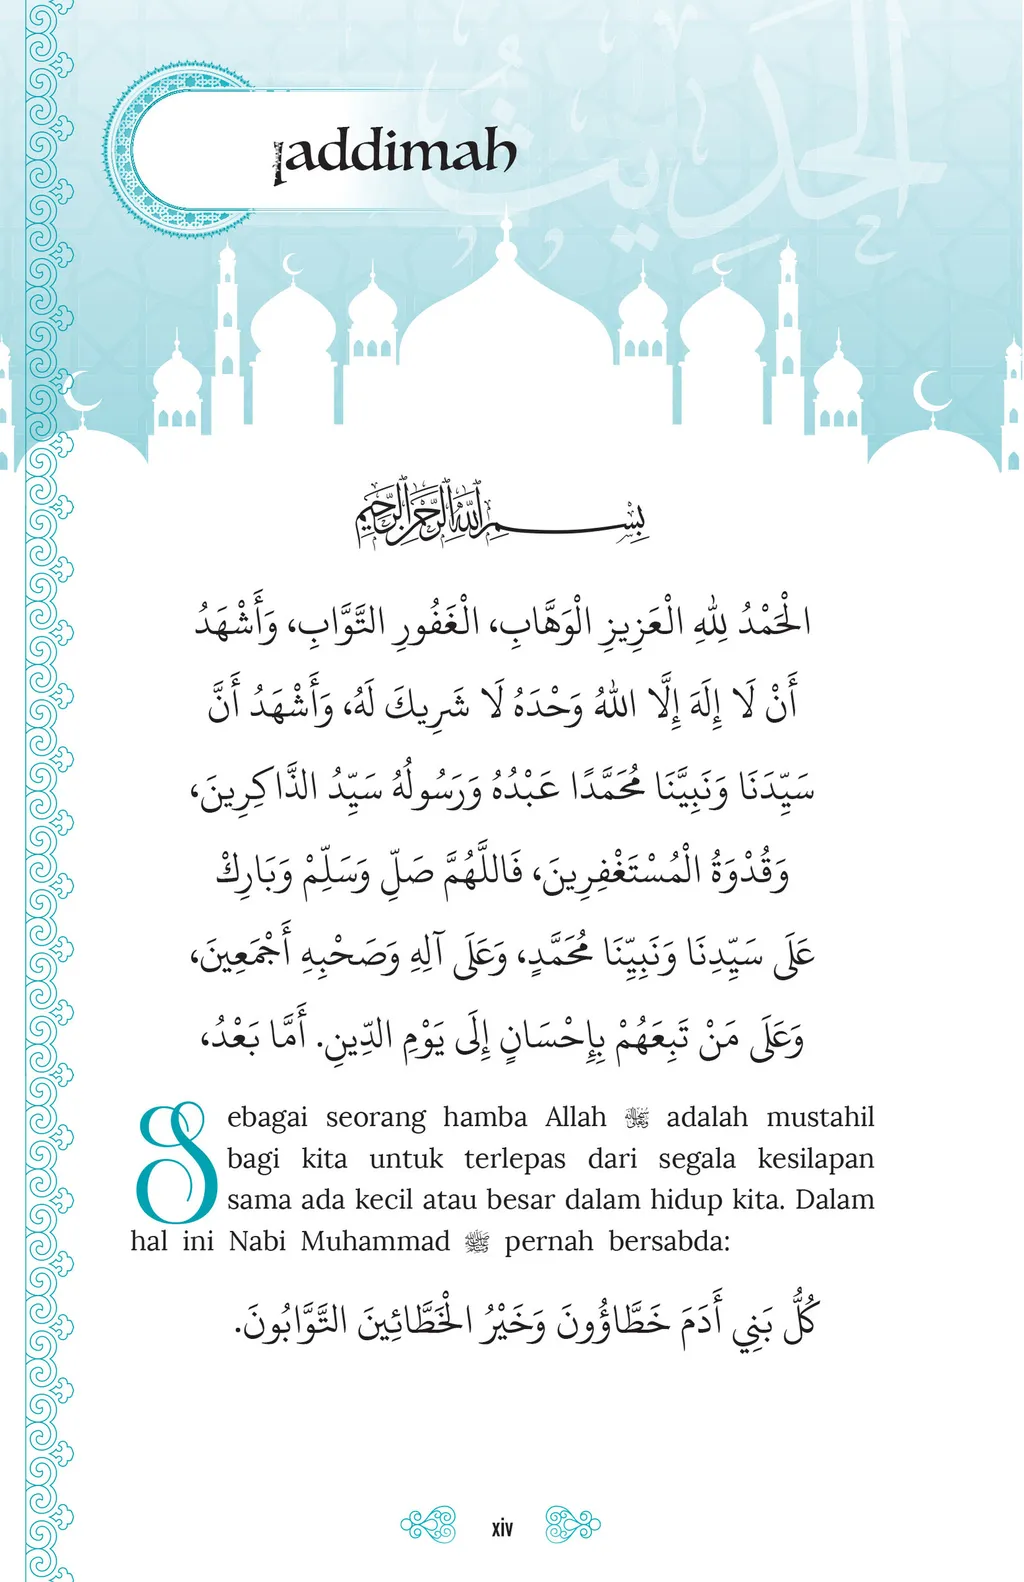 addimah
الحديث
بِسْمِ اللَّهِ الرَّحْمَٰنِ الرَّحِيمِ
الْحَمْدُ لِلَّهِ الْعَزِيزِ الْوَهَّابِ، الْغَفُورِ التَّوَّابِ، وَأَشْهَدُ
أَنْ لَا إِلَهَ إِلَّا اللهُ وَحْدَهُ لَا شَرِيكَ لَهُ، وَأَشْهَدُ أَنَّ
سَيِّدَنَا وَنَبِيَّنَا مُحَمَّدًا عَبْدُهُ وَرَسُولُهُ سَيِّدُ الذَّاكِرِينَ،
وَقُدْوَةُ الْمُسْتَغْفِرِينَ، فَاللَّهُمَّ صَلِّ وَسَلِّمْ وَبَارِكْ
عَلَى سَيِّدِنَا وَنَبِيِّنَا مُحَمَّدٍ، وَعَلَى آلِهِ وَصَحْبِهِ أَجْمَعِينَ،
وَعَلَى مَنْ تَبِعَهُمْ بِإِحْسَانٍ إِلَى يَوْمِ الدِّينِ. أَمَّا بَعْدُ،
Sebagai seorang hamba Allah ﷻ adalah mustahil
bagi kita untuk terlepas dari segala kesilapan
sama ada kecil atau besar dalam hidup kita. Dalam
hal ini Nabi Muhammad ﷺ pernah bersabda:
كُلُّ بَنِي أَدَمَ خَطَّاؤُونَ وَخَيْرُ الْخَطَّائِينَ التَّوَّابُونَ.
xiv